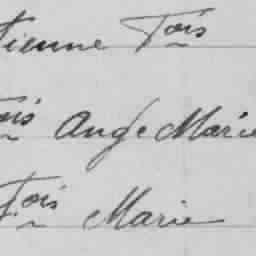 tienne Fois
ois Ange Marie
Fois Marie